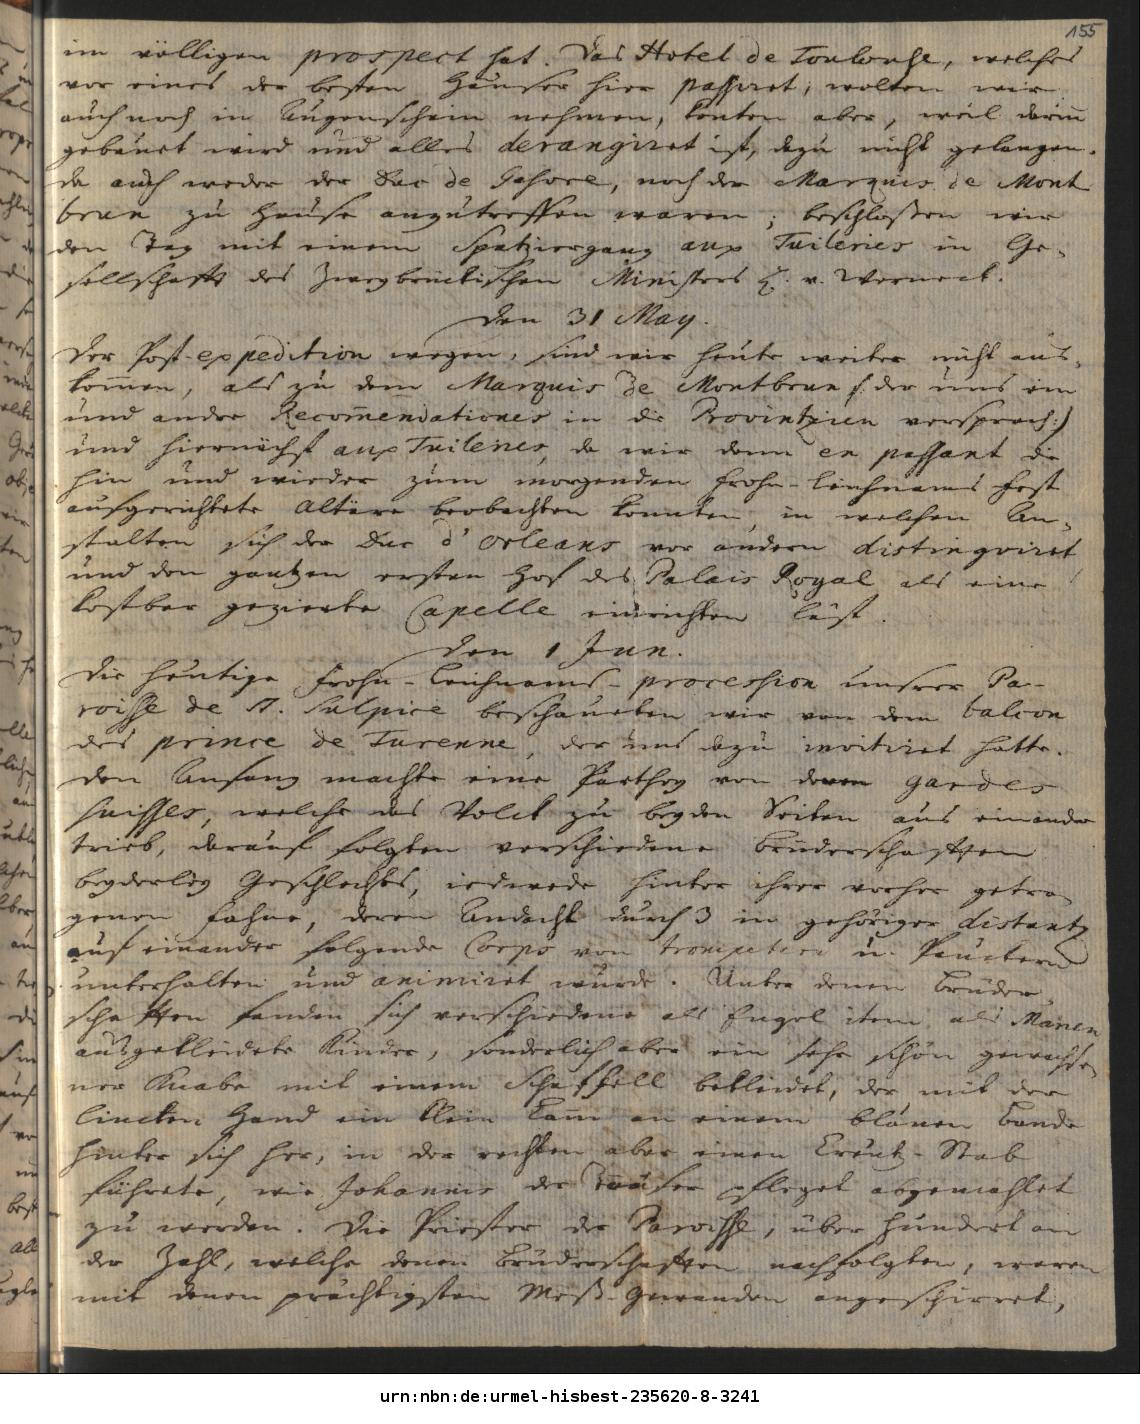 155
im völligen prospect hat. Das Hotel de Toulouse, welches
vor eines der besten Häuser hier passiret, wolten wir
auch noch in Augenschein nehmen, konten aber, weil darin̄
gebauet wird und alles derangiret ist, dazu nicht gelangen.
da auch weder der Duc de, noch der Marquis de Mont
brun zu Hause anzutreffen waren; beschloßen wir
den Tag mit einem Spatziergang aux Tuileries in Ge-
sellschafft des Zweybrückischen Ministers H. v. Werneck.
den 31 May.
Der Post-expedition wegen, sind wir heute weiter nicht aus-
kom̄en, als zu dem Marquis de Montbrun /: der uns ein
und andre Recom̄endationes in die Provintzien versprach :/
und hiernächst aux Tuileries, da wir denn en passant die
hin und wieder zum morgenden Frohn-Leichnams Fest
aufgerichtete Altäre beobachten konnten, in welchen An-
stalten sich der Duc d'Orleans vor andern distingviret
und den gantzen ersten Hof des Palais Royal als eine
kostbar gezierte Capelle einrichten läst.
den 1 Jun.
Die heutige Frohn-Leichnams-procession unsrer Pa-
roisse de St. Sulpice beschaueten wir von dem balcon
des prince de Turenne, der uns dazu invitiret hatte.
Den Anfang machte eine Parthey von denen gardes
suisses, welche das Volck zu beyden Seiten aus einander
trieb, darauf folgten verschiedene Brüderschafften
beyderley Geschlechts, iedwede hinter ihrer vorher getra-
genen Fahne, deren Andacht durch 3 in gehöriger distantz
auf einander folgende Corps von trompetern u. Pauckern
unterhalten und animiret wurde. Unter denen Brüder-
schafften fanden sich verschiedene als Engel item als Marien
ausgekleidete Kinder, sonderlich aber ein sehr schön gewachse-
ner Knabe mit einem Schaffell bekleidet, der mit der
lincken Hand ein klein Lam̄ an einem blauen Bande
hinter sich her, in der rechten aber einen Creutz-Stab
führete, wie Johannes der Täufer pfleget abgemahlet
zu werden. Die Priester der Paroisse, über hundert an
der Zahl, welche denen Brüderschafften nachfolgten, waren
mit denen prächtigsten Meß-Gewanden angeschirret,
urn:nbn:de:urmel-hisbest-235620-8-3241